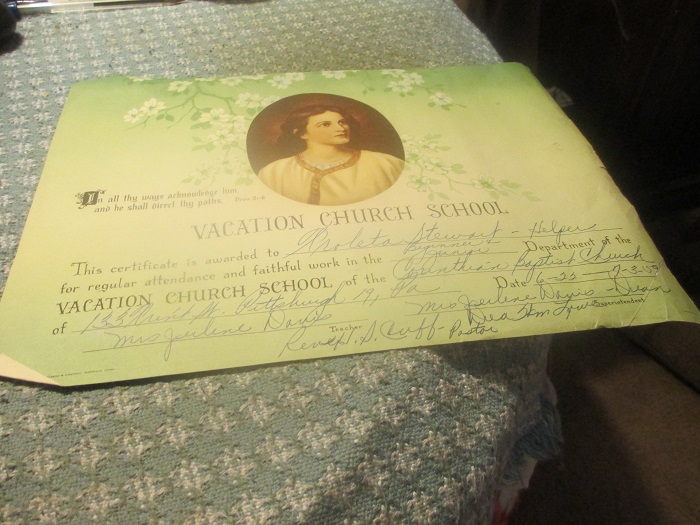 In all thy ways acknowledge him,
and he shall direct thy paths. Prov. 3-6
VACATION CHURCH SCHOOL
This certificate is awarded to Stewart - Helper
Beginner &
for regular attendance and faithful work in the Junior Department of the
VACATION CHURCH SCHOOL of the Corinthian Baptist Church
of St. Pittsburgh 19, Pa Date 6-22 - 7-3-53
Mrs Jerlene Davis Mrs Jerlene Davis - Dean
Teacher Superintendent
A. Cuff - Pastor